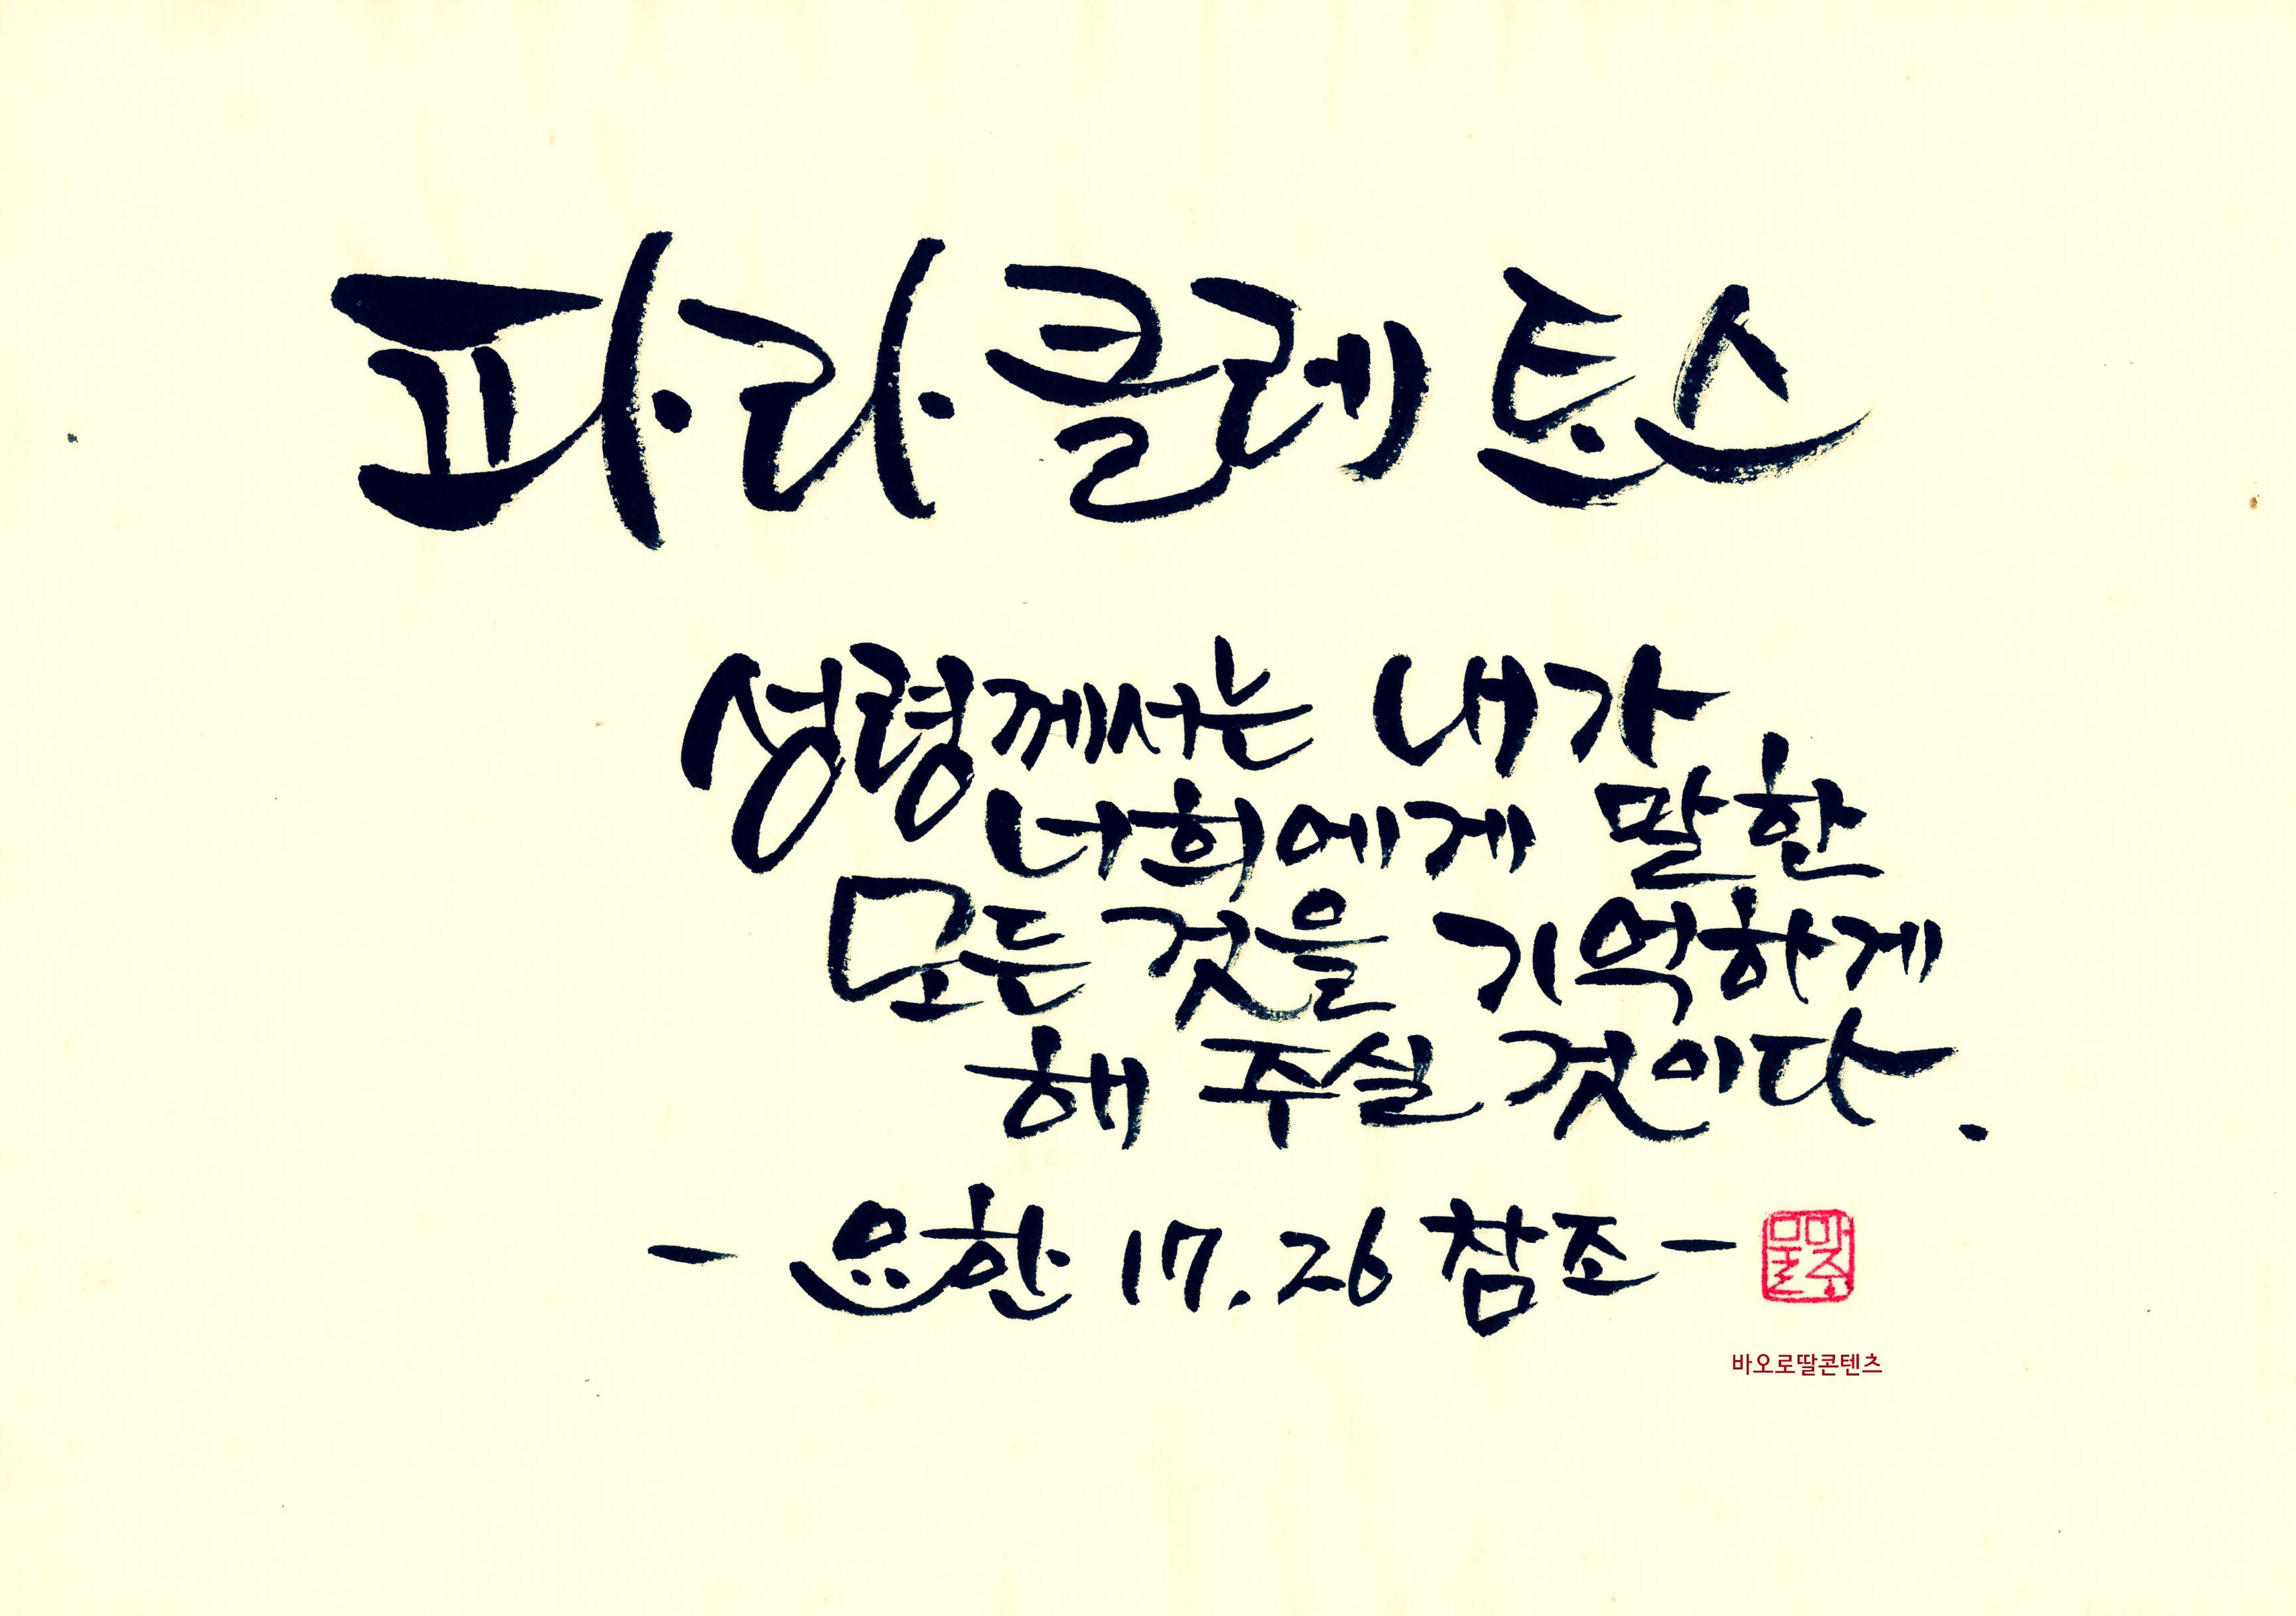 파라클레토스
성령께서는 내가
너희에게 말한
모든 것을 기억하게
해 주실 것이다.
- 요한 17.26 참조 -
바오로딸콘텐츠